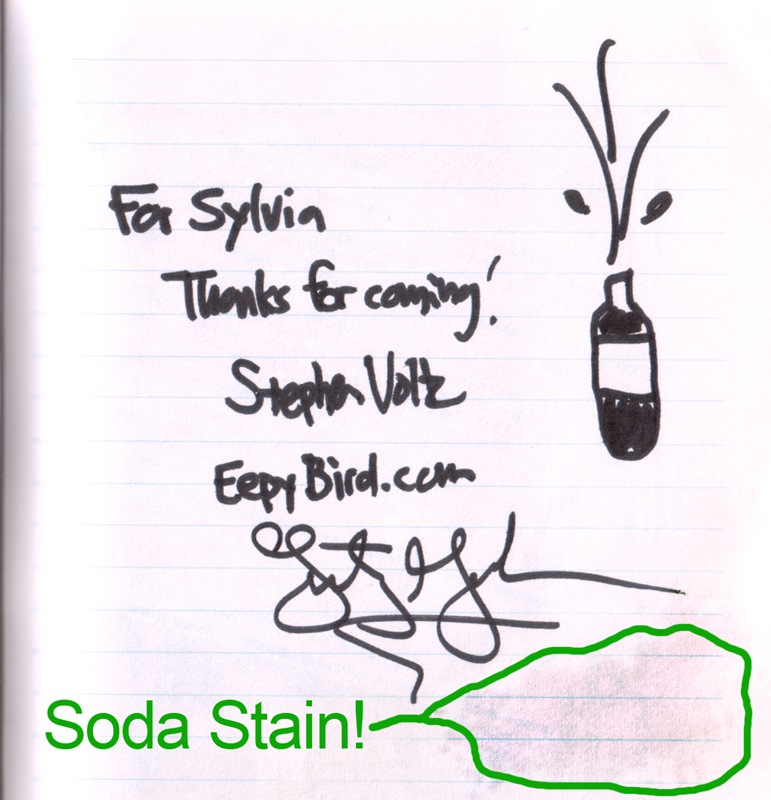 For Sylvia
Thanks for coming!
Stephen Voltz
EepyBird.com
Soda Stain!